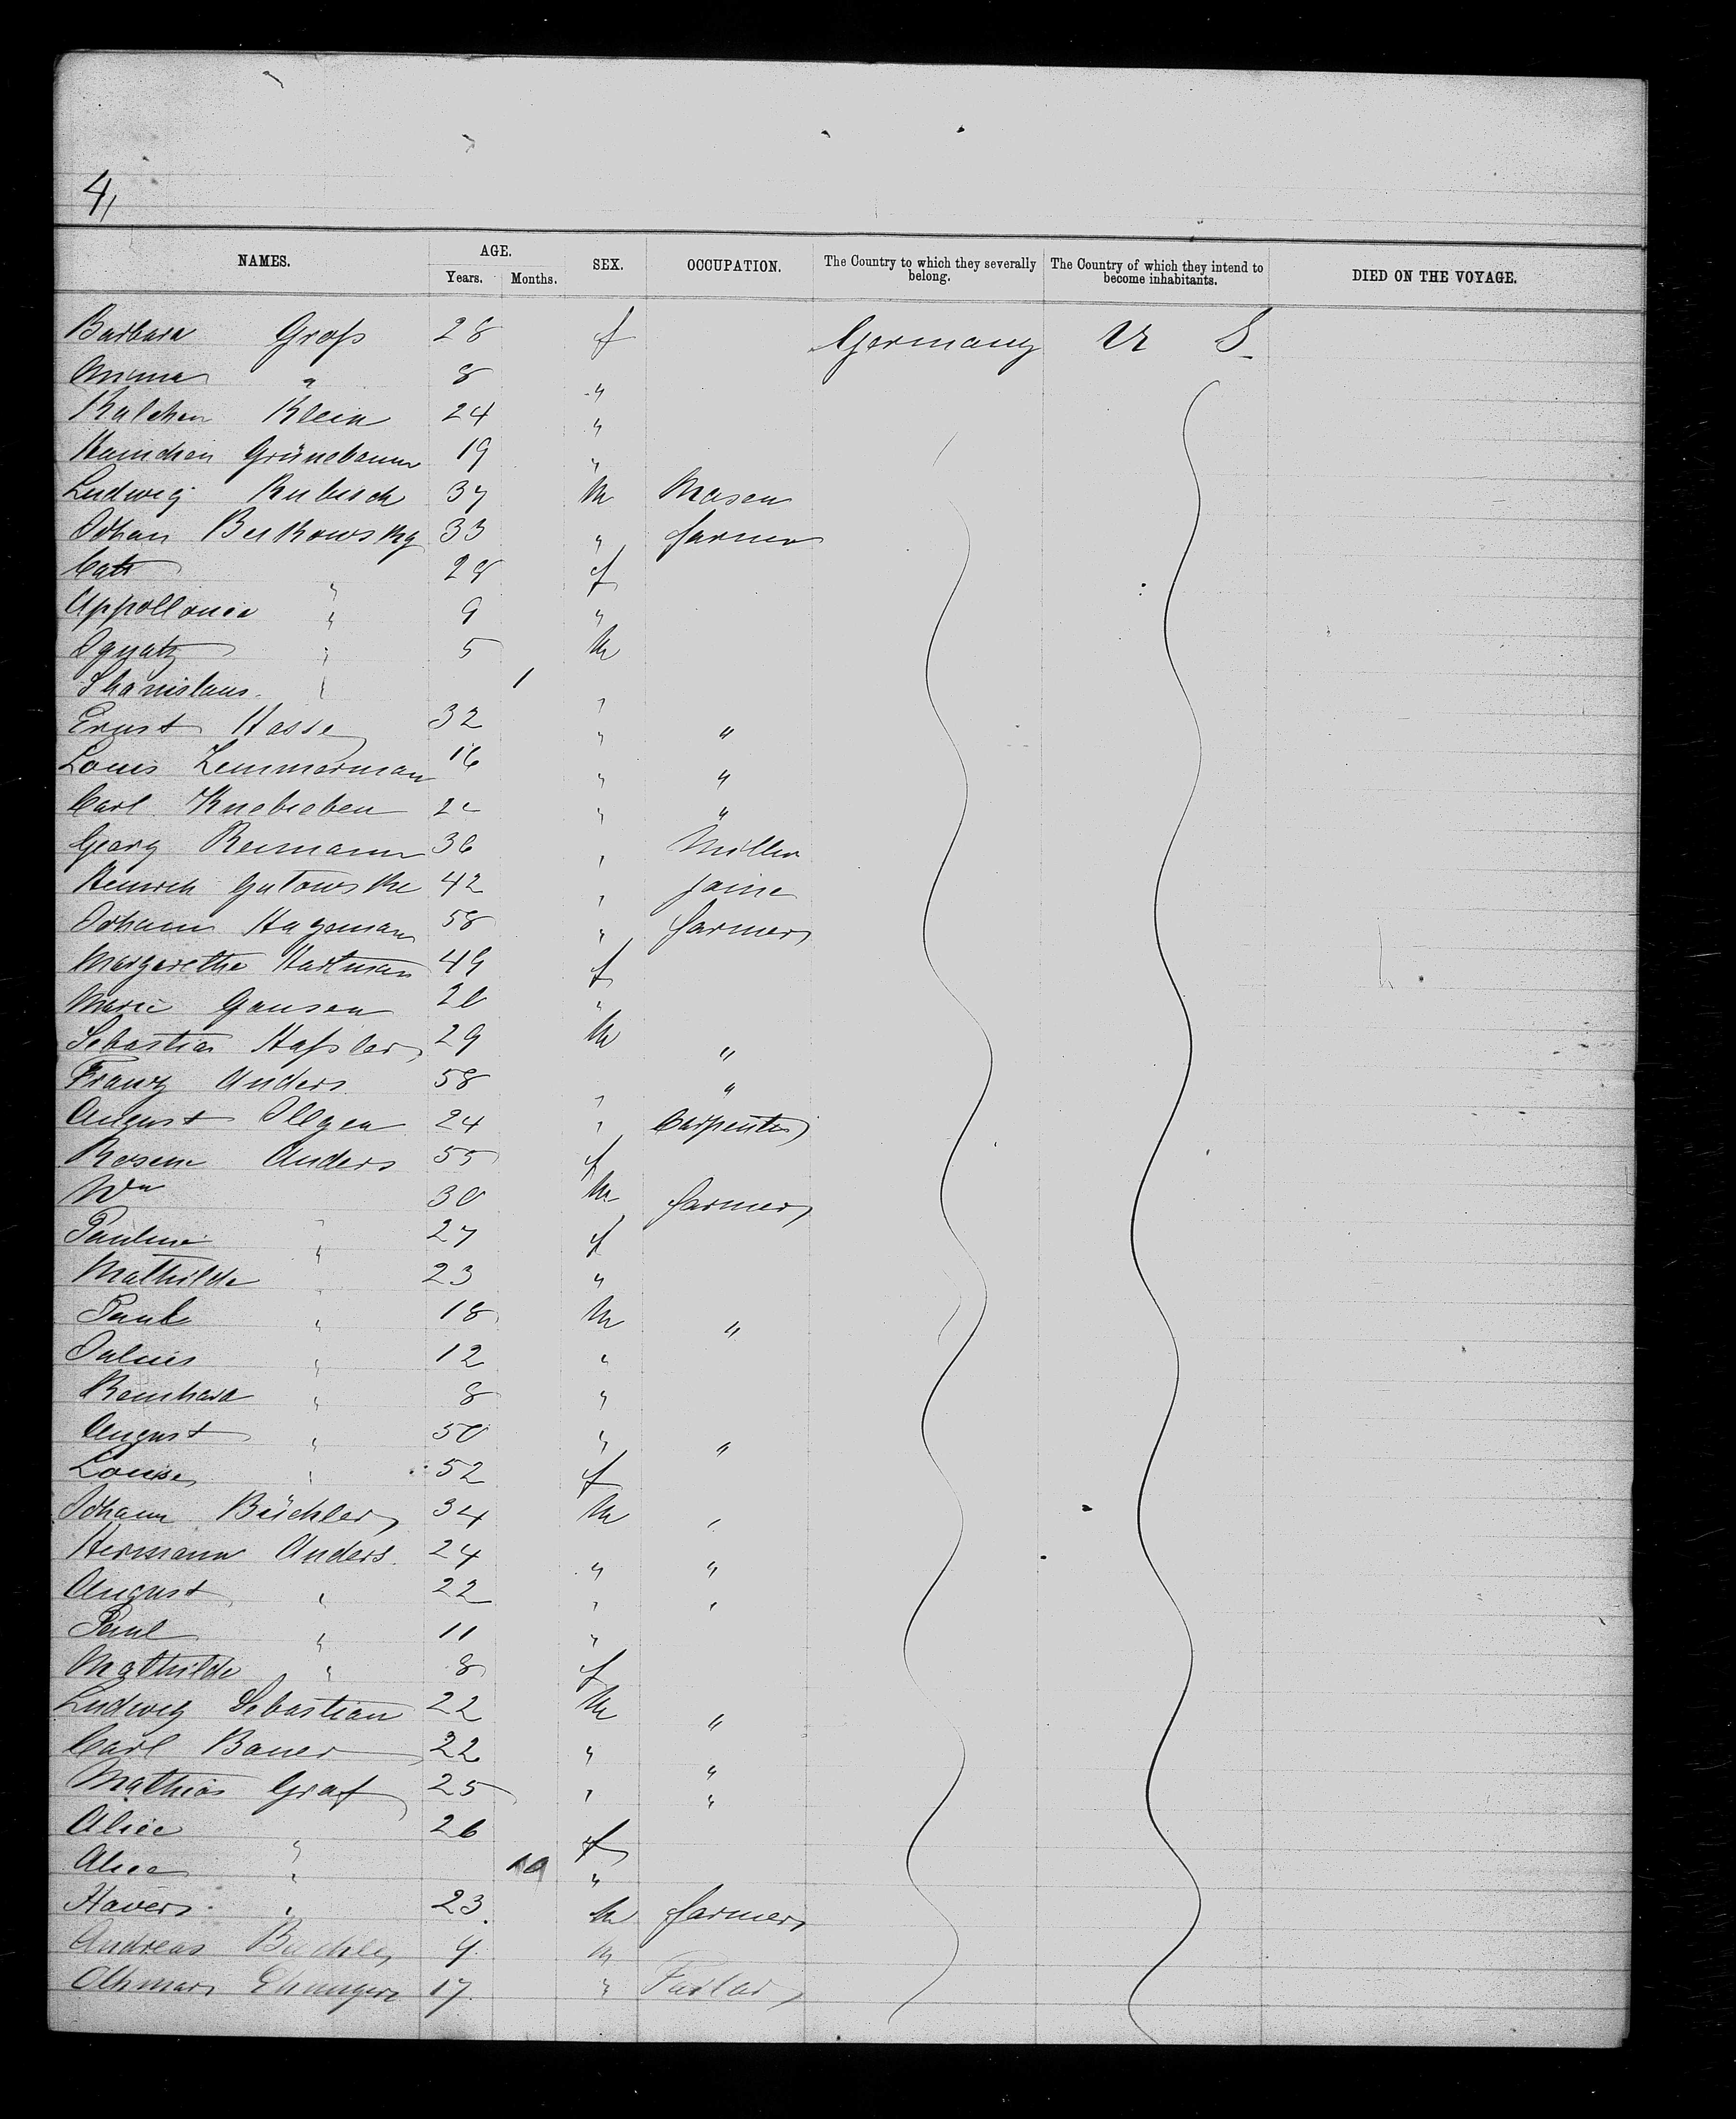 4,
NAMES. AGE. Years. Months. SEX. OCCUPATION. The Country to which they severally belong. The Country of which they intend to become inhabitants. DIED ON THE VOYAGE.
Barbara Groſs 28 f Germany U S.
Anna " 8 "
Klein 24 "
Grünebaum 19 "
Ludwig Rubisch 37 M Mason
Johan 33 " farmer
Cath " 28 f
Appollonia " 9 "
Ignatz " 5 M
Stanislaus " 1 "
Ernst Hasse 32 " "
Louis Zemmerman 16 " "
Carl " "
Georg Reimann 36 " Miller
Heinrich Gutowski 42 "
Johann Hageman 58 " farmer
Margarethe Hartman 49 f
Marie Gansen 20 "
Sebastian Haſsler 29 M "
Franz Anders 58 " "
August Illgen 24 " Carpenter
Anders 55 f
Wm " 30 M farmer
Pauline " 27 f
Mathilde " 23 "
Paul " 18 M "
Julius " 12 "
Reinhard " 8 "
August " 50 " "
Louise " 52 f
Johann Büchler 34 M "
Hermann Anders. 24 " "
August " 22 " "
Paul " 11 "
Mathilde " 8 f
Ludwig Sebastian 22 M "
Carl Bauer 22 " "
Mathias Graf 25 " "
Alice " 26 f
Alice " "
Xavers " 23 M farmer
Andreas 9 M
Othmar 17 "